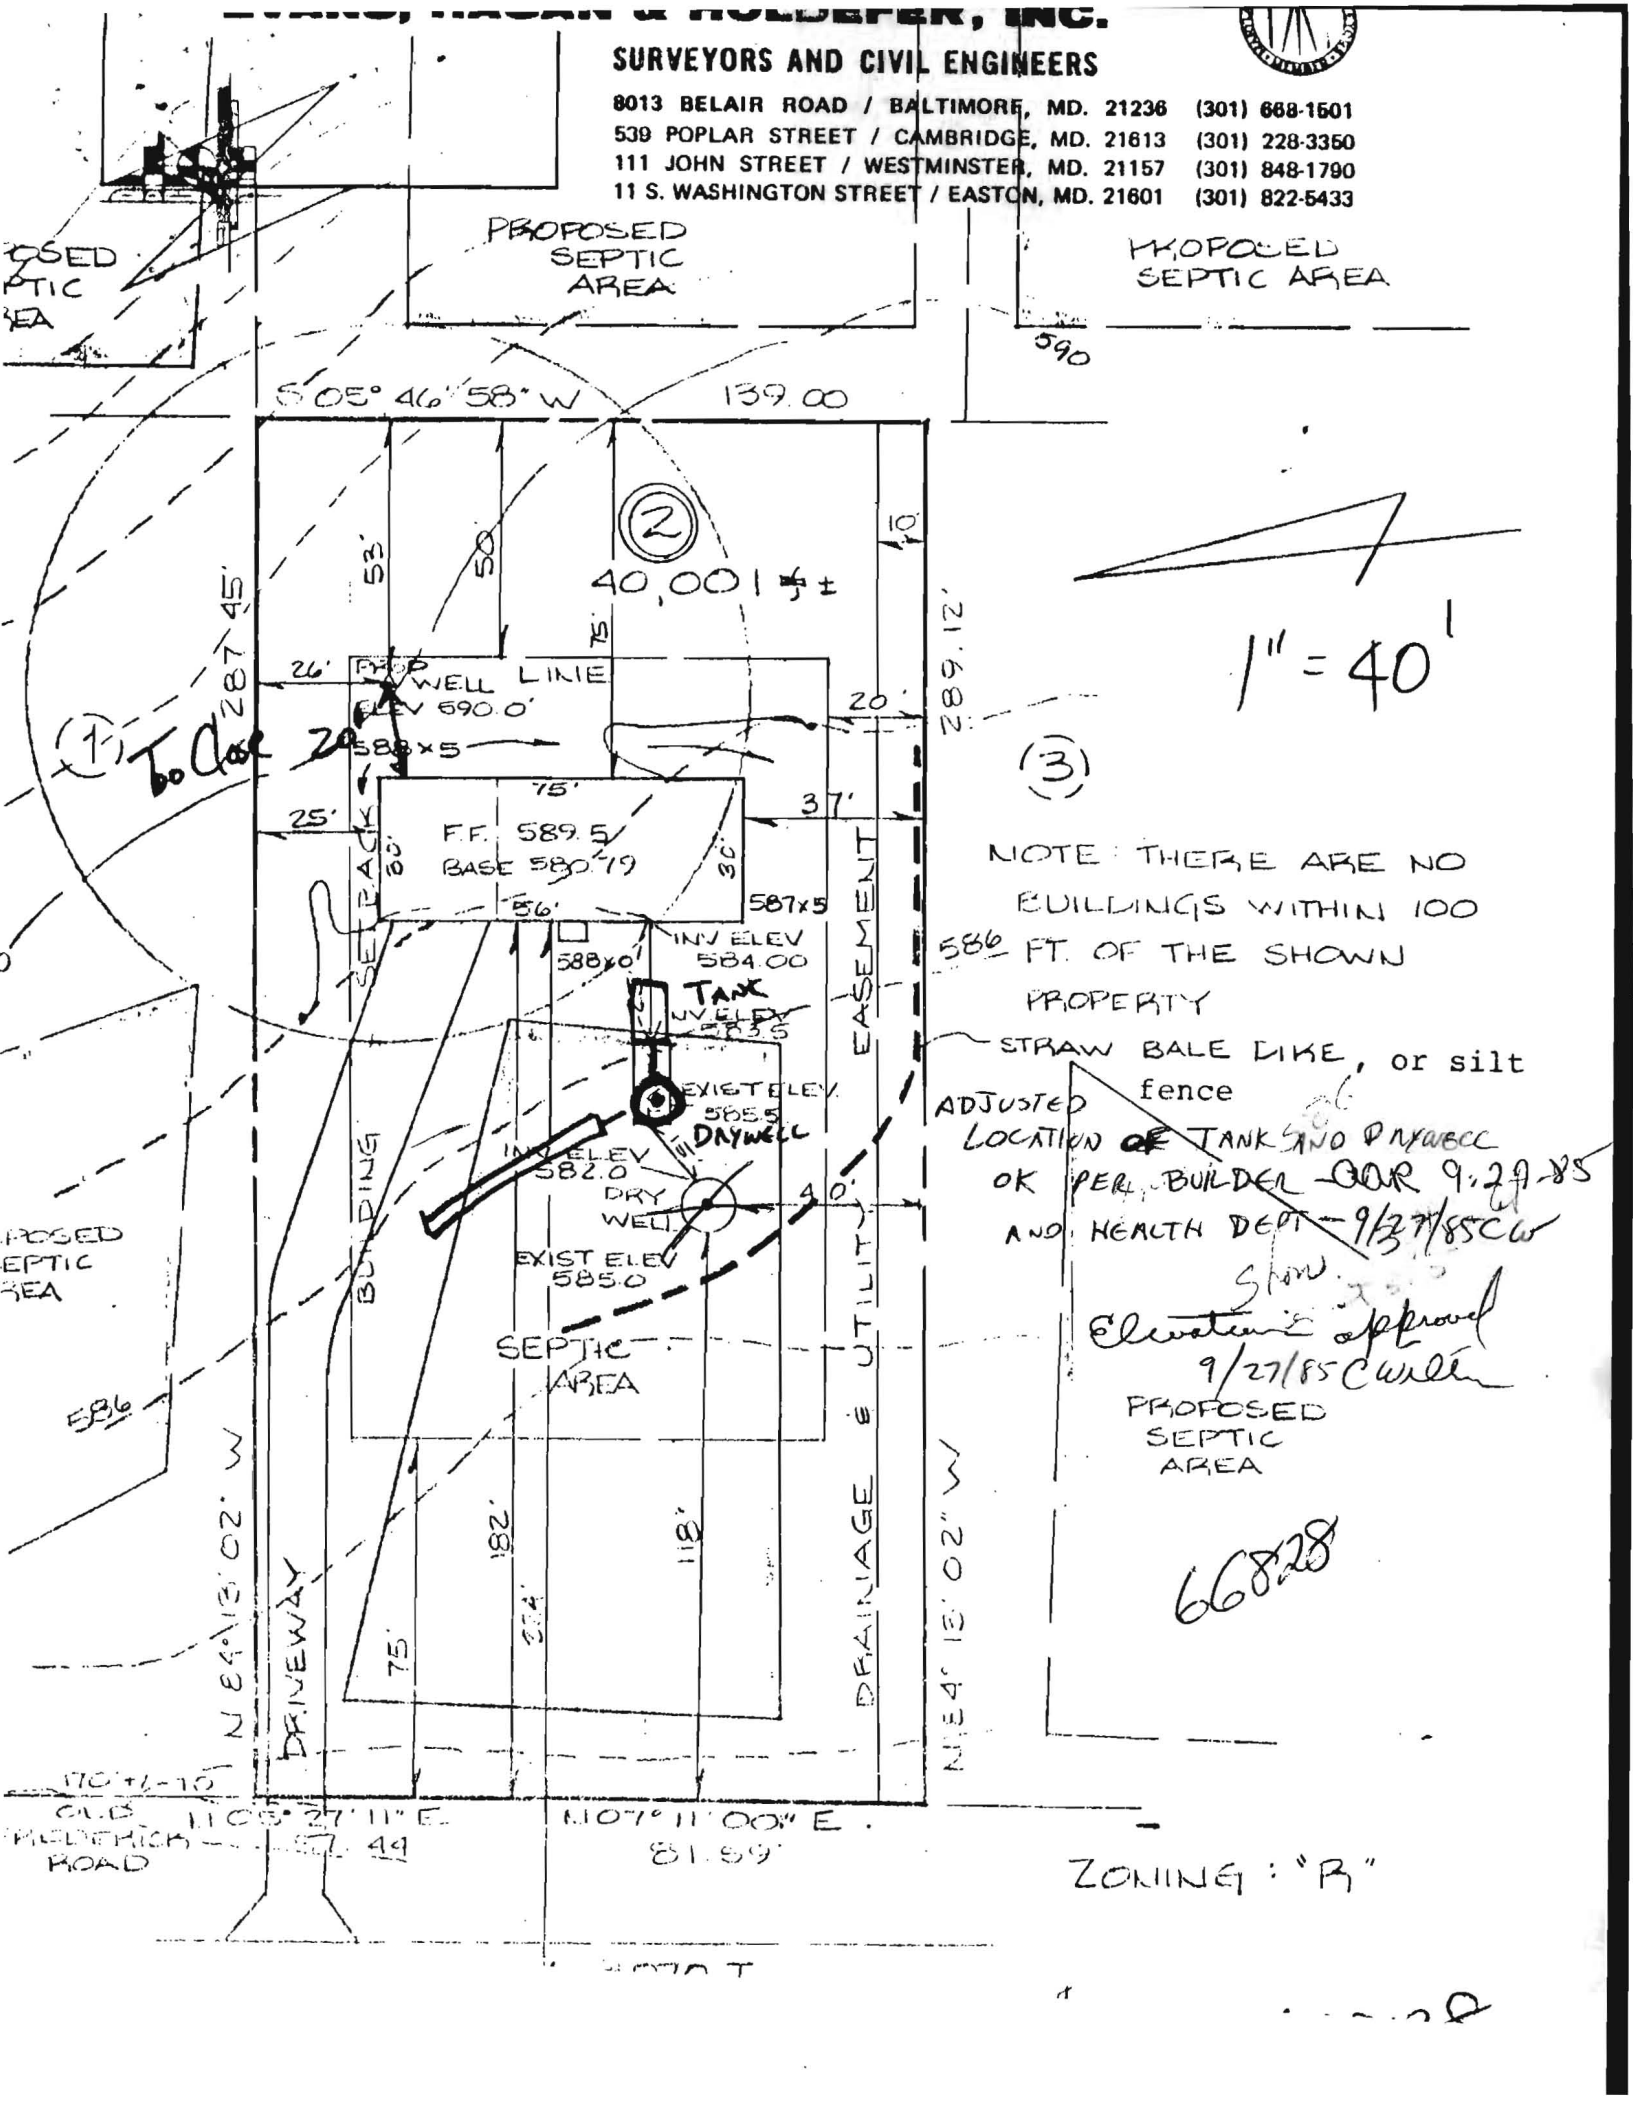 EVANS, HAGAN & HOLDEFER, INC.
SURVEYORS AND CIVIL ENGINEERS
8013 BELAIR ROAD / BALTIMORE, MD. 21236 (301) 668-1501
539 POPLAR STREET / CAMBRIDGE, MD. 21613 (301) 228-3350
111 JOHN STREET / WESTMINSTER, MD. 21157 (301) 848-1790
11 S. WASHINGTON STREET / EASTON, MD. 21601 (301) 822-5433
PROPOSED
SEPTIC
AREA
PROPOSED
SEPTIC AREA
OSED
PTIC
REA
590
S 05° 46' 58" W 139.00
2
40,001 ±
53'
50'
75'
10'
287.45'
289.12'
1" = 40'
26'
PROP
WELL LINE
ELEV 590.0'
20'
1
Too Close 20'
588x5
3
75'
25'
37'
F.F. 589.5
BASE 580.79
30'
30'
56'
587x5
SETBACK
BUILDING
INV ELEV
584.00
588x0
TANK
INV ELEV
583.5
EXIST ELEV
585.5
DRYWELL
INV ELEV
582.0
DRY
WELL
40'
EXIST ELEV
585.0
SEPTIC
AREA
DRAINAGE & UTILITY EASEMENT
NOTE: THERE ARE NO
BUILDINGS WITHIN 100
FT. OF THE SHOWN
PROPERTY
586
STRAW BALE DIKE, or silt
fence
ADJUSTED
LOCATION OF TANK AND DRYWELL
OK PER BUILDER 9-27-85
AND HEALTH DEPT - 9/27/85 CW
Show
Elevations approved
9/27/85
PROPOSED
SEPTIC
AREA
66828
POSED
EPTIC
REA
586
N 84° 13' 02" W
DRIVEWAY
75'
182'
118'
N 84° 13' 02" W
OLD
FREDERICK
ROAD
N 05° 27' 11" E
57.44
N 07° 11' 00" E
81.59'
ZONING: "R"